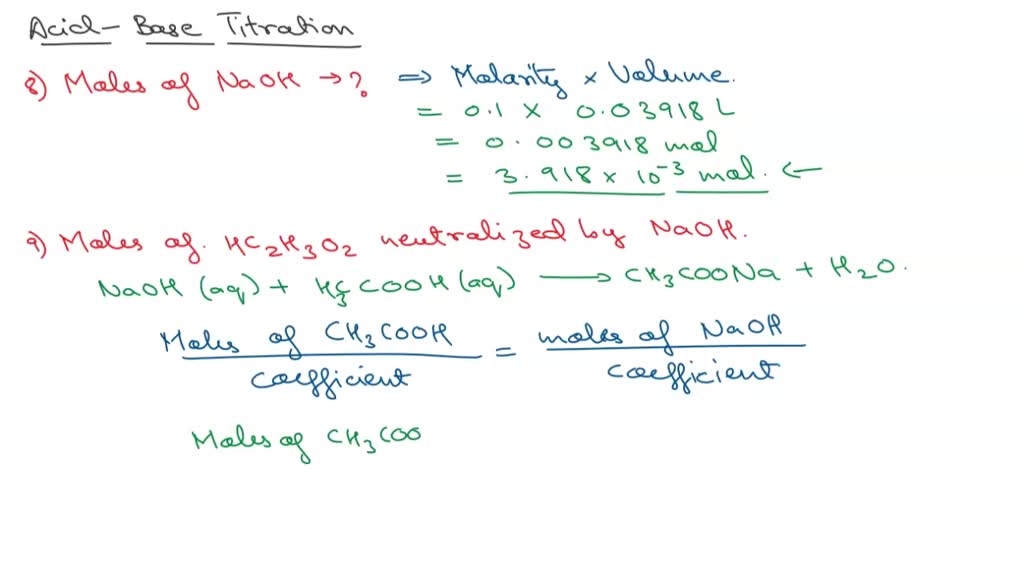 Acid-Base Titration
8) Moles of NaOH → ? ⇒ Molarity × Volume.
= 0.1 × 0.03918 L
= 0.003918 mol
= 3.918 × 10⁻³ mol. ←
9) Moles of. HC₂H₃O₂ neutralized by NaOH.
NaOH (aq) + H₃CCOOH (aq) ⟶ CH₃COONa + H₂O.
Moles of CH₃COOH / coefficient = moles of NaOH / coefficient
Moles of CH₃COO